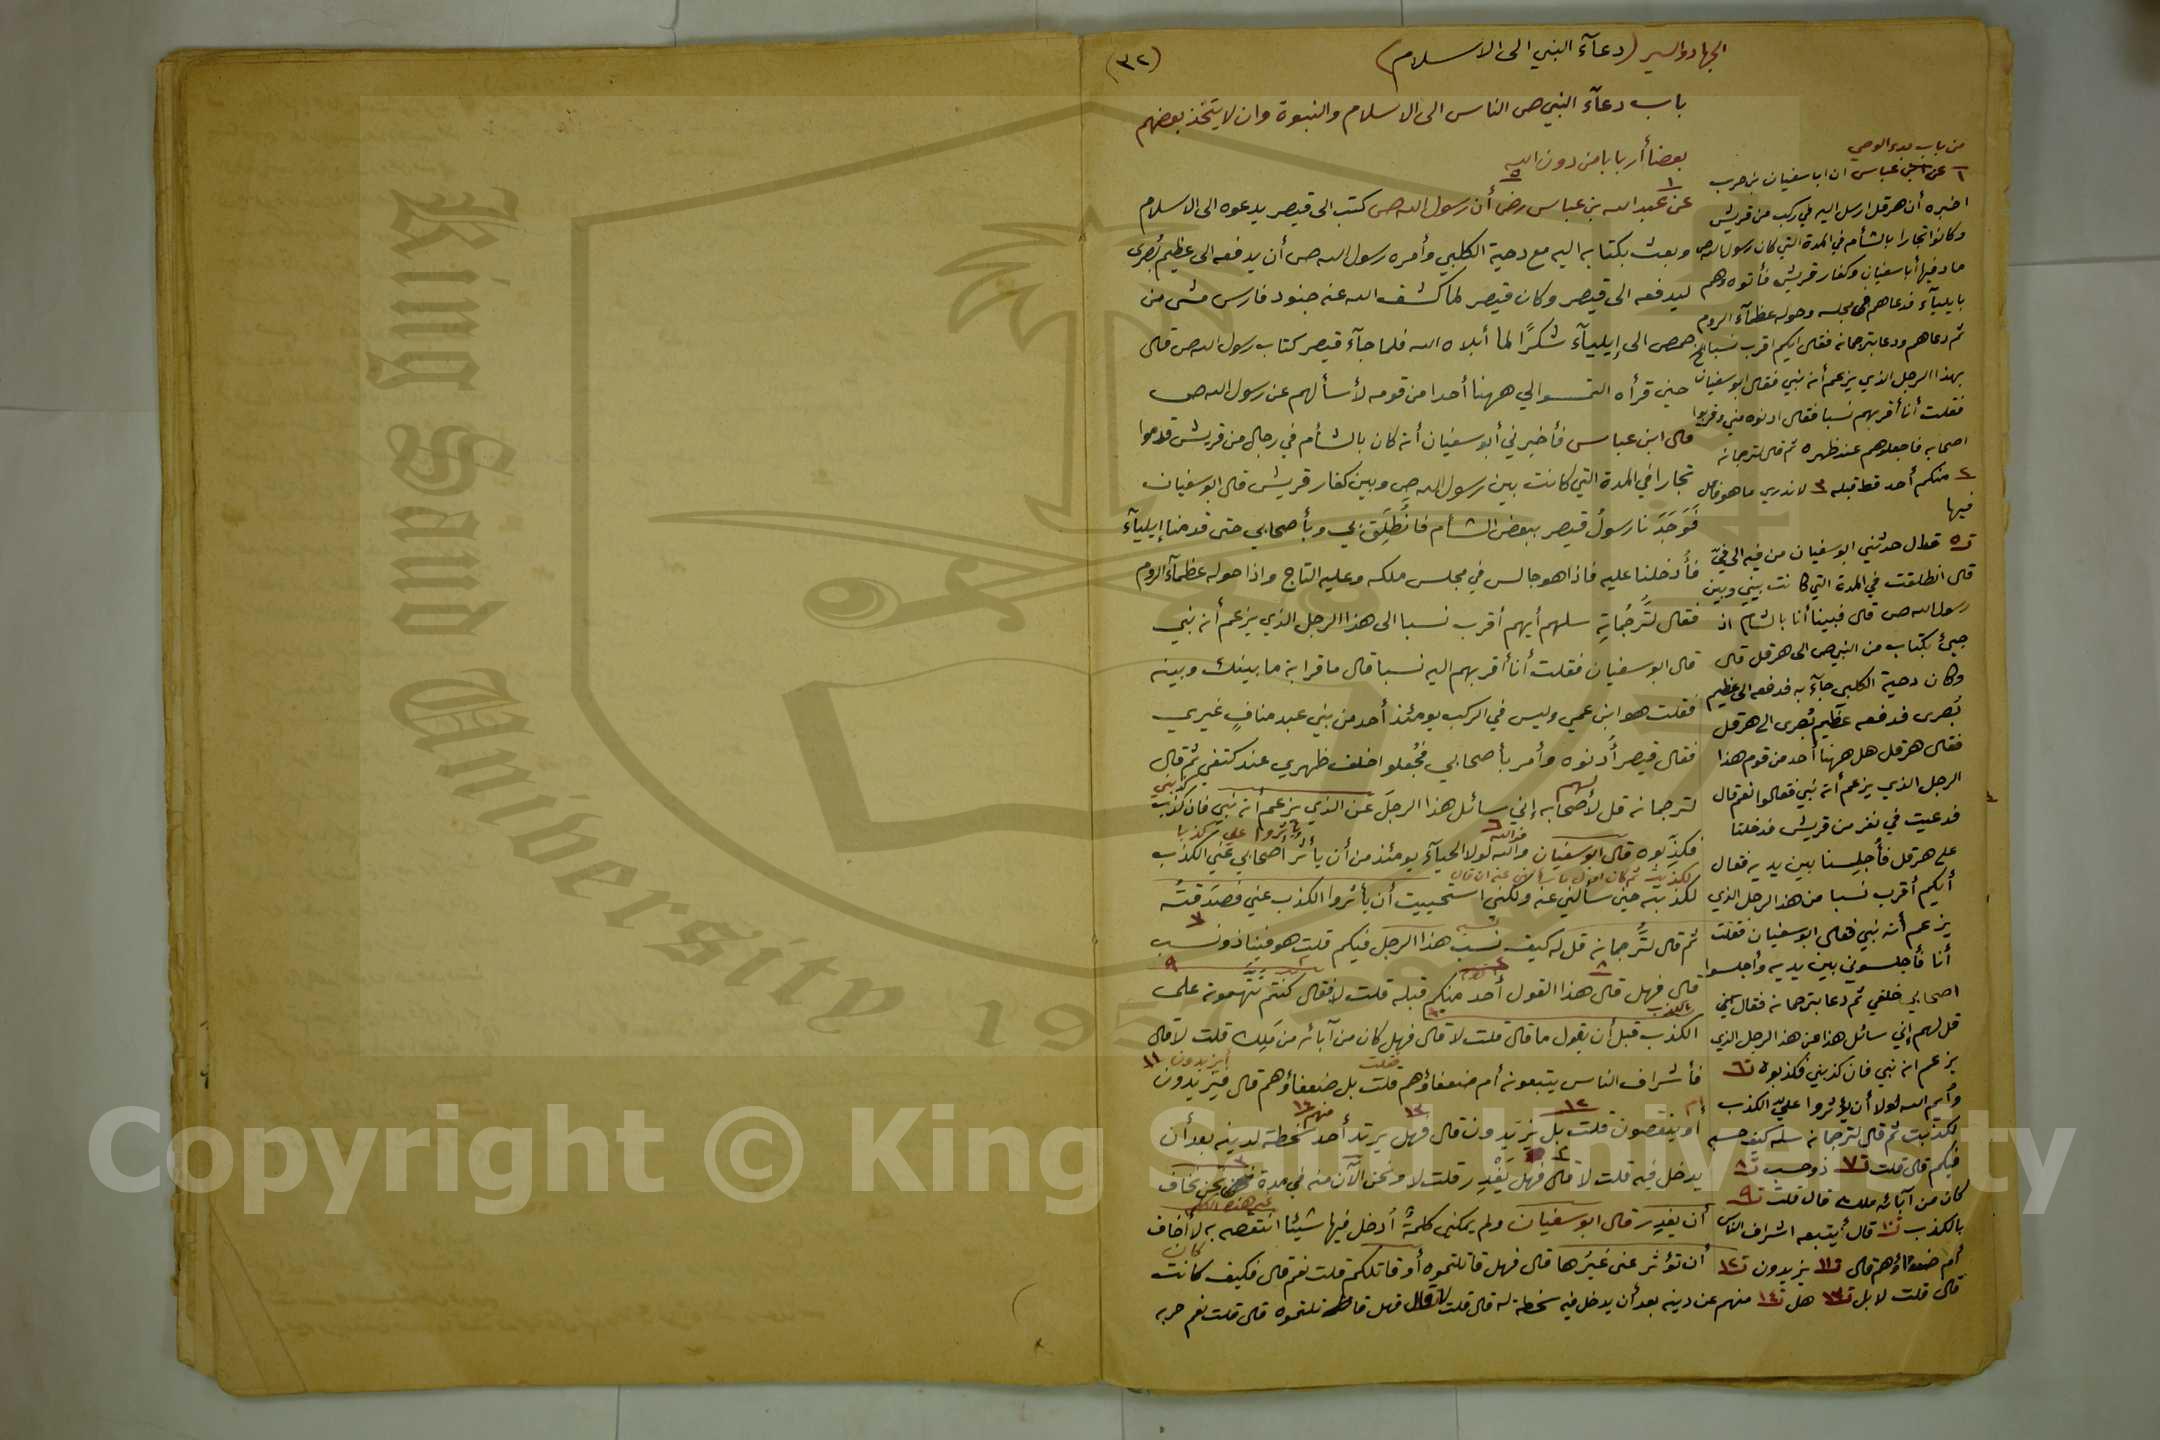 الجهاد والسير (دعآء النبي الى الاسلام)
(٣٢)
باب دعآء النبي ص الناس الى الاسلام والنبوة وان لا يتخذ بعضهم
بعضا أربابا من دون الله
عن عبد الله بن عباس رض أن رسول الله ص كتب الى قيصر يدعوه الى الاسلام
وبعث بكتابه اليه مع دحية الكلبي وأمره رسول الله ص أن يدفعه الى عظيم بُصرى
ليدفعه الى قيصر وكان قيصر لما كشف الله عنه جنود فارس مشى من
حمص الى إيليآء شكرًا لما أبلاه الله فلما جآء قيصر كتاب رسول الله ص قال
حين قرأه التمسوا لي ههنا أحدا من قومه لأسألهم عن رسول الله ص
قال ابن عباس فأخبرني أبو سفيان أنه كان بالشأم في رجال من قريش قدموا
تجارا في المدة التي كانت بين رسول الله ص وبين كفار قريش قال ابو سفيان
فَوَجَدَنا رسولُ قيصر ببعض الشأم فانطُلِقَ بي وبأصحابي حتى قدمنا إيليآء
فأُدخلنا عليه فاذا هو جالس في مجلس ملكه وعليه التاج واذا حوله عظمآء الروم
فقال لتَُرجُمانِهِ سلهم أيهم أقرب نسبا الى هذا الرجل الذي يزعم أنه نبي
قال ابو سفيان فقلت أنا أقربهم اليه نسبا قال ما قرابة ما بينك وبينه
فقلت هو ابن عمي وليس في الركب يومئذ أحد من بني عبد منافٍ غيري
فقال قيصر أَدنوه وأمر بأصحابي فجُعلوا خلف ظهري عند كتفي ثم قال
لترجمانه قل لأصحابه إني سائل هذا الرجلَ عن الذي يزعم أنه نبي فان كذب
فكذِّبوه قال ابو سفيان والله لولا الحيآء يومئذ من أن يأثُر أصحابي عني الكذب
لكذبته حين سألني عنه ولكني استحييت أن يأثروا الكذب عني فصَدَقتُه
ثم قال لتَُرجمانه قل له كيف نسبُ هذا الرجل فيكم قلت هو فينا ذو نسب
قال فهل قال هذا القول أحد منكم قبله قلت لا فقال كنتم تتهمونه على
الكذب قبل أن يقول ما قال قلت لا قال فهل كان من آبائه من مَلِك قلت لا قال
فأشراف الناس يتبعونه أم ضعفاؤهم قلت بل ضعفاؤهم قال فيزيدون
أو ينقصون قلت بل يزيدون قال فهل يرتد أحد سَخطة لدينه بعد أن
يدخل فيه قلت لا قال فهل يَغْدِر قلت لا ونحن الآن منه في مدة نحن نخاف
أن يغدِر قال ابو سفيان ولم يمكني كلمةٌ أُدخل فيها شيئا انتقصه به لا أخاف
أن تؤثر عني غيرُها قال فهل قاتلتموه أو قاتلكم قلت نعم قال فكيف كانت
من باب بدء الوحي
عن عباس ان ابا سفيان بن حرب
اخبره أن هرقل ارسل اليه في ركب من قريش
وكانوا تجارا بالشأم في المدة التي كان رسول الله ص
ماد فيها أبا سفيان وكفار قريش فأتوه وهم
بايليآء فدعاهم في مجلسه وحوله عظمآء الروم
ثم دعاهم ودعا بترجمانه فقال ايكم اقرب نسبا
بهذا الرجل الذي يزعم أنه نبي فقال ابو سفيان
فقلت أنا أقربهم نسبا فقال ادنوه مني وقربوا
اصحابه فاجعلوهم عند ظهره ثم قال لترجمانه
٢ منكم أحد قط قبله ٣ لا ندري ما هو فاعل
فيها
قال حدثني ابو سفيان من فيه الى فيّ
قال انطلقت في المدة التي كانت بيني وبين
رسول الله ص قال فبينا أنا بالشام اذ
جيئ بكتاب من النبي ص الى هرقل قال
وكان دحية الكلبي جآء به فدفعه الى عظيم
بُصرى فدفعه عظيم بُصرى الى هرقل
فقال هرقل هل ههنا أحد من قوم هذا
الرجل الذي يزعم أنه نبي فقالوا نعم قال
فدعيت في نفر من قريش فدخلنا
على هرقل فأُجلِسنا بين يديه فقال
أيكم أقرب نسبا من هذا الرجل الذي
يزعم أنه نبي فقال ابو سفيان فقلت
أنا فأجلسوني بين يديه وأجلسوا
اصحابي خلفي ثم دعا بترجمانه فقال
قل لهم إني سائل هذا عن هذا الرجل الذي
يزعم انه نبي فان كذبني فكذبوه
وأيم الله لولا أن يؤثروا عليّ الكذب
لكذبت ثم قال لترجمانه سله كيف حسبه
فيكم قال قلت ذو حسب
كان من آبائه ملك قال قلت
بالكذب قال أيتبعه اشراف الناس
أم ضعفاؤهم قال يزيدون
قال قلت لا بل هل منهم عن دينه بعد أن يدخل فيه سخطة له قال قلت لا قال فهل قاتلتموه قال قلت نعم حربه
Copyright © King Saud University
King Saud University 1957